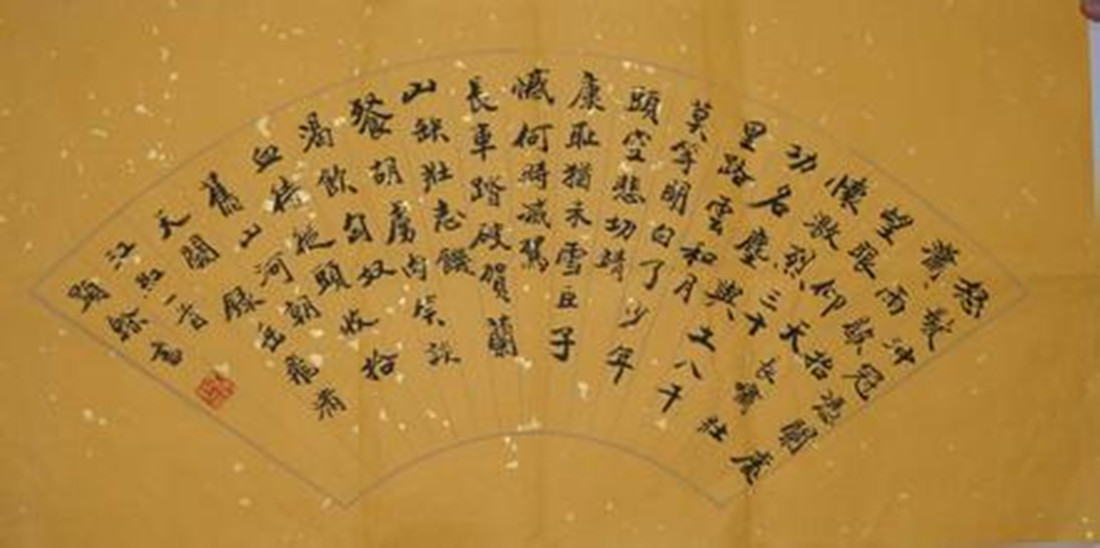 怒髮冲冠憑闌處
瀟雨歇抬
望眼仰天長嘯壯
懷激烈三十
功名塵與土八千
里路雲和月
莫等閒白了少年
頭空悲切靖
康耻猶未雪臣子
憾何時滅駕
長車踏破賀蘭
山缺壯志饑
餐胡虜肉笑談
渴飲匈奴
血待從頭收拾
舊山河朝
天闕錄岳飛滿
江紅一首
書